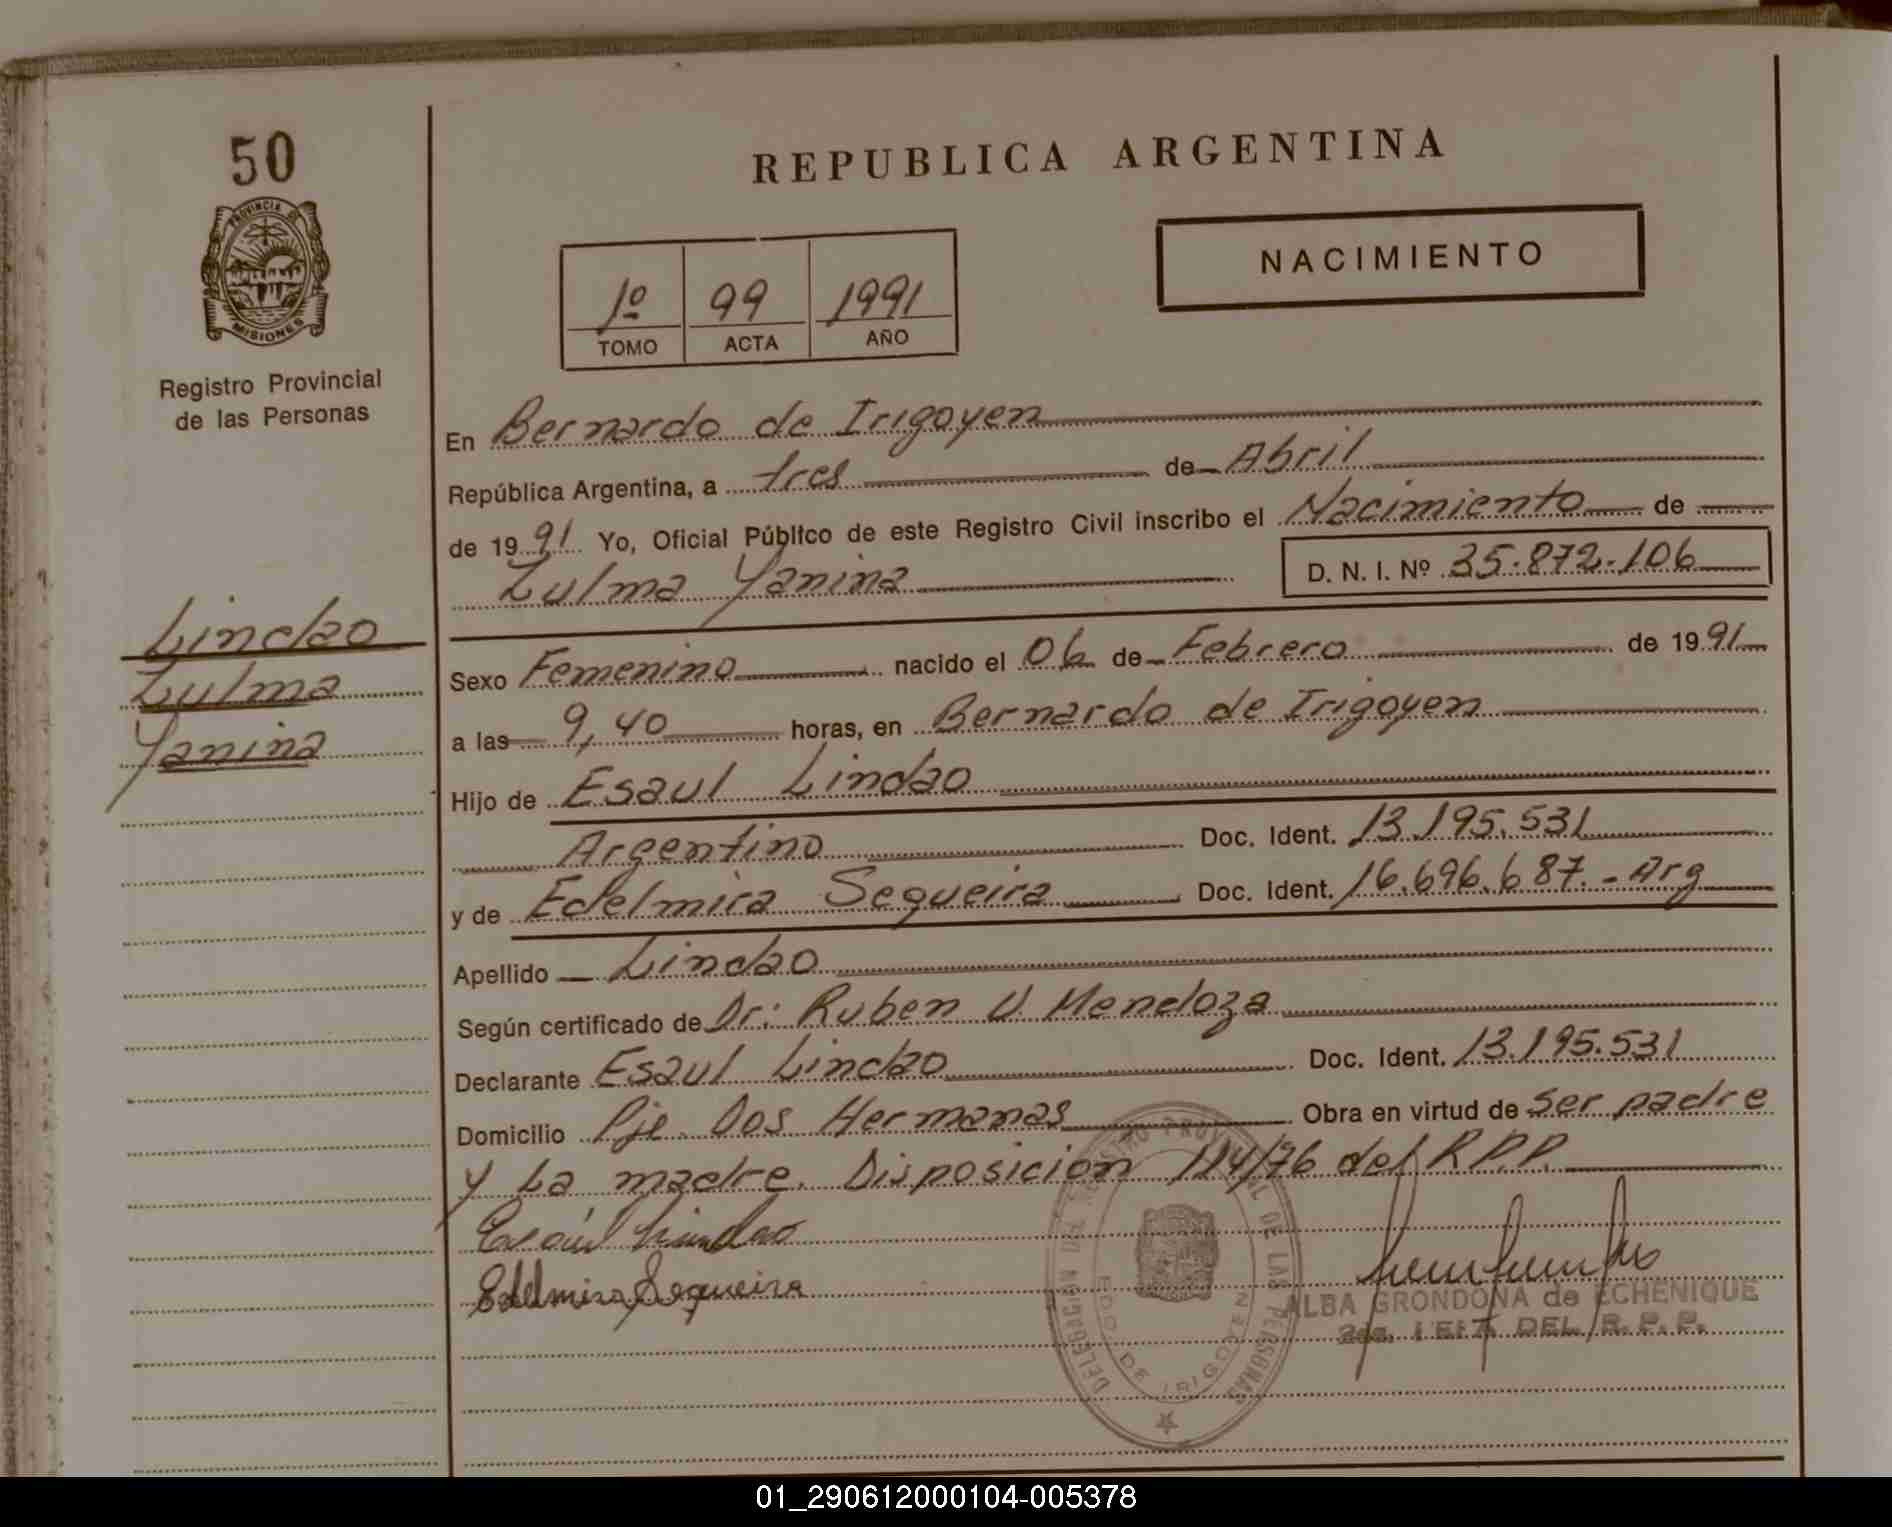 50
PROVINCIA DE
MISIONES
Registro Provincial
de las Personas
Lindao
Zulma
Yanina
REPUBLICA ARGENTINA
NACIMIENTO
1º 99 1991
TOMO ACTA AÑO
En Bernardo de Irigoyen
República Argentina, a tres de Abril
de 1991 Yo, Oficial Público de este Registro Civil inscribo el Nacimiento de
Zulma Yanina D. N. I. Nº 35.872.106
Sexo Femenino nacido el 06 de Febrero de 1991
a las 9,40 horas, en Bernardo de Irigoyen
Hijo de Esaul Lindao
Argentino Doc. Ident. 13.195.531
y de Edelmira Sequeira Doc. Ident. 16.696.687.-Arg
Apellido Lindao
Según certificado de Dr: Ruben V. Mendoza
Declarante Esaul Lindao Doc. Ident. 13.195.531
Domicilio Pje. Dos Hermanas Obra en virtud de ser padre
y La madre. Disposición 114/76 del R.P.P.
Esaúl Lindao
Edelmira Sequeira
DELEGACION DEL REGISTRO PROVINCIAL DE LAS PERSONAS
BDO. DE IRIGOYEN
ALBA GRONDONA de ECHENIQUE
DEL R. P. P.
01_290612000104-005378